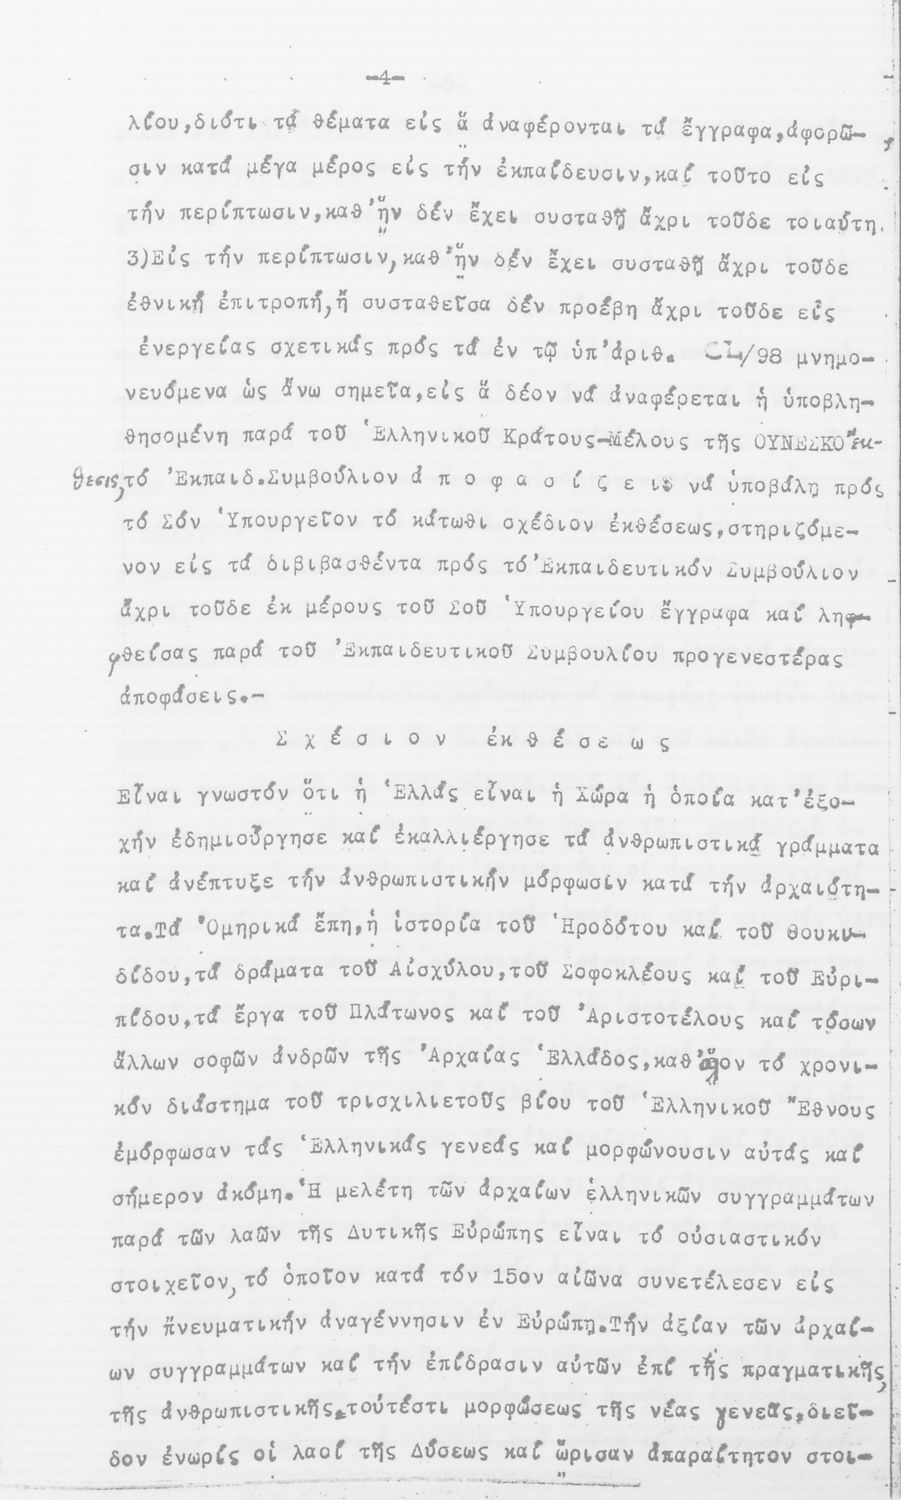 -4-
λίου,διότι τά θέματα είς ἅ ἀναφέρονται τά ἔγγραφα,ἀφορῶ-
σιν κατά μέγα μέρος είς τήν ἐκπαίδευσιν,καί τοῦτο είς
τήν περίπτωσιν,καθ'ἥν δέν ἔχει συσταθῆ ἄχρι τοῦδε τοιαύτη.
3)Είς τήν περίπτωσιν,καθ'ἥν δέν ἔχει συσταθῆ ἄχρι τοῦδε
ἐθνική ἐπιτροπή,ἤ συσταθεῖσα δέν προέβη ἄχρι τοῦδε είς
ἐνεργείας σχετικάς πρός τά ἐν τῷ ὑπ'ἀριθ. CL/98 μνημο-
νευόμενα ὡς ἄνω σημεῖα,είς ἅ δέον νά ἀναφέρεται ἡ ὑποβλη-
θησομένη παρά τοῦ Ἑλληνικοῦ Κράτους-Μέλους τῆς ΟΥΝΕΣΚΟ ἔκ-
θεσις,τό Ἐκπαιδ.Συμβούλιον ἀ π ο φ α σ ί ζ ε ι νά ὑποβάλη πρός
τό Σόν Ὑπουργεῖον τό κάτωθι σχέδιον ἐκθέσεως,στηριζόμε-
νον είς τά διβιβασθέντα πρός τό Ἐκπαιδευτικόν Συμβούλιον
ἄχρι τοῦδε ἐκ μέρους τοῦ Σοῦ Ὑπουργείου ἔγγραφα καί λη-
φθείσας παρά τοῦ Ἐκπαιδευτικοῦ Συμβουλίου προγενεστέρας
ἀποφάσεις.-
Σ χ έ σ ι ο ν ἐκ θ έ σ ε ω ς
Εἶναι γνωστόν ὅτι ἡ Ἑλλάς εἶναι ἡ Χώρα ἡ ὁποία κατ'ἐξο-
χήν ἐδημιούργησε καί ἐκαλλιέργησε τά ἀνθρωπιστικά γράμματα
καί ἀνέπτυξε τήν ἀνθρωπιστικήν μόρφωσιν κατά τήν ἀρχαιότη-
τα.Τά Ὁμηρικά ἔπη,ἡ ἱστορία τοῦ Ἡροδότου καί τοῦ Θουκυ-
δίδου,τά δράματα τοῦ Αἰσχύλου,τοῦ Σοφοκλέους καί τοῦ Εὐρι-
πίδου,τά ἔργα τοῦ Πλάτωνος καί τοῦ Ἀριστοτέλους καί τόσων
ἄλλων σοφῶν ἀνδρῶν τῆς Ἀρχαίας Ἑλλάδος,καθ'ὅλον τό χρονι-
κόν διάστημα τοῦ τρισχιλιετοῦς βίου τοῦ Ἑλληνικοῦ Ἔθνους
ἐμόρφωσαν τάς Ἑλληνικάς γενεάς καί μορφώνουσιν αὐτάς καί
σήμερον ἀκόμη.Ἡ μελέτη τῶν ἀρχαίων ἑλληνικῶν συγγραμμάτων
παρά τῶν λαῶν τῆς Δυτικῆς Εὐρώπης εἶναι τό οὐσιαστικόν
στοιχεῖον,τό ὁποῖον κατά τόν 15ον αἰῶνα συνετέλεσεν είς
τήν πνευματικήν ἀναγέννησιν ἐν Εὐρώπῃ.Τήν ἀξίαν τῶν ἀρχαί-
ων συγγραμμάτων καί τήν ἐπίδρασιν αὐτῶν ἐπί τῆς πραγματικῆς,
τῆς ἀνθρωπιστικῆς,τοὐτέστι μορφώσεως τῆς νέας γενεᾶς,διεῖ-
δον ἐνωρίς οἱ λαοί τῆς Δύσεως καί ὥρισαν ἀπαραίτητον στοι-